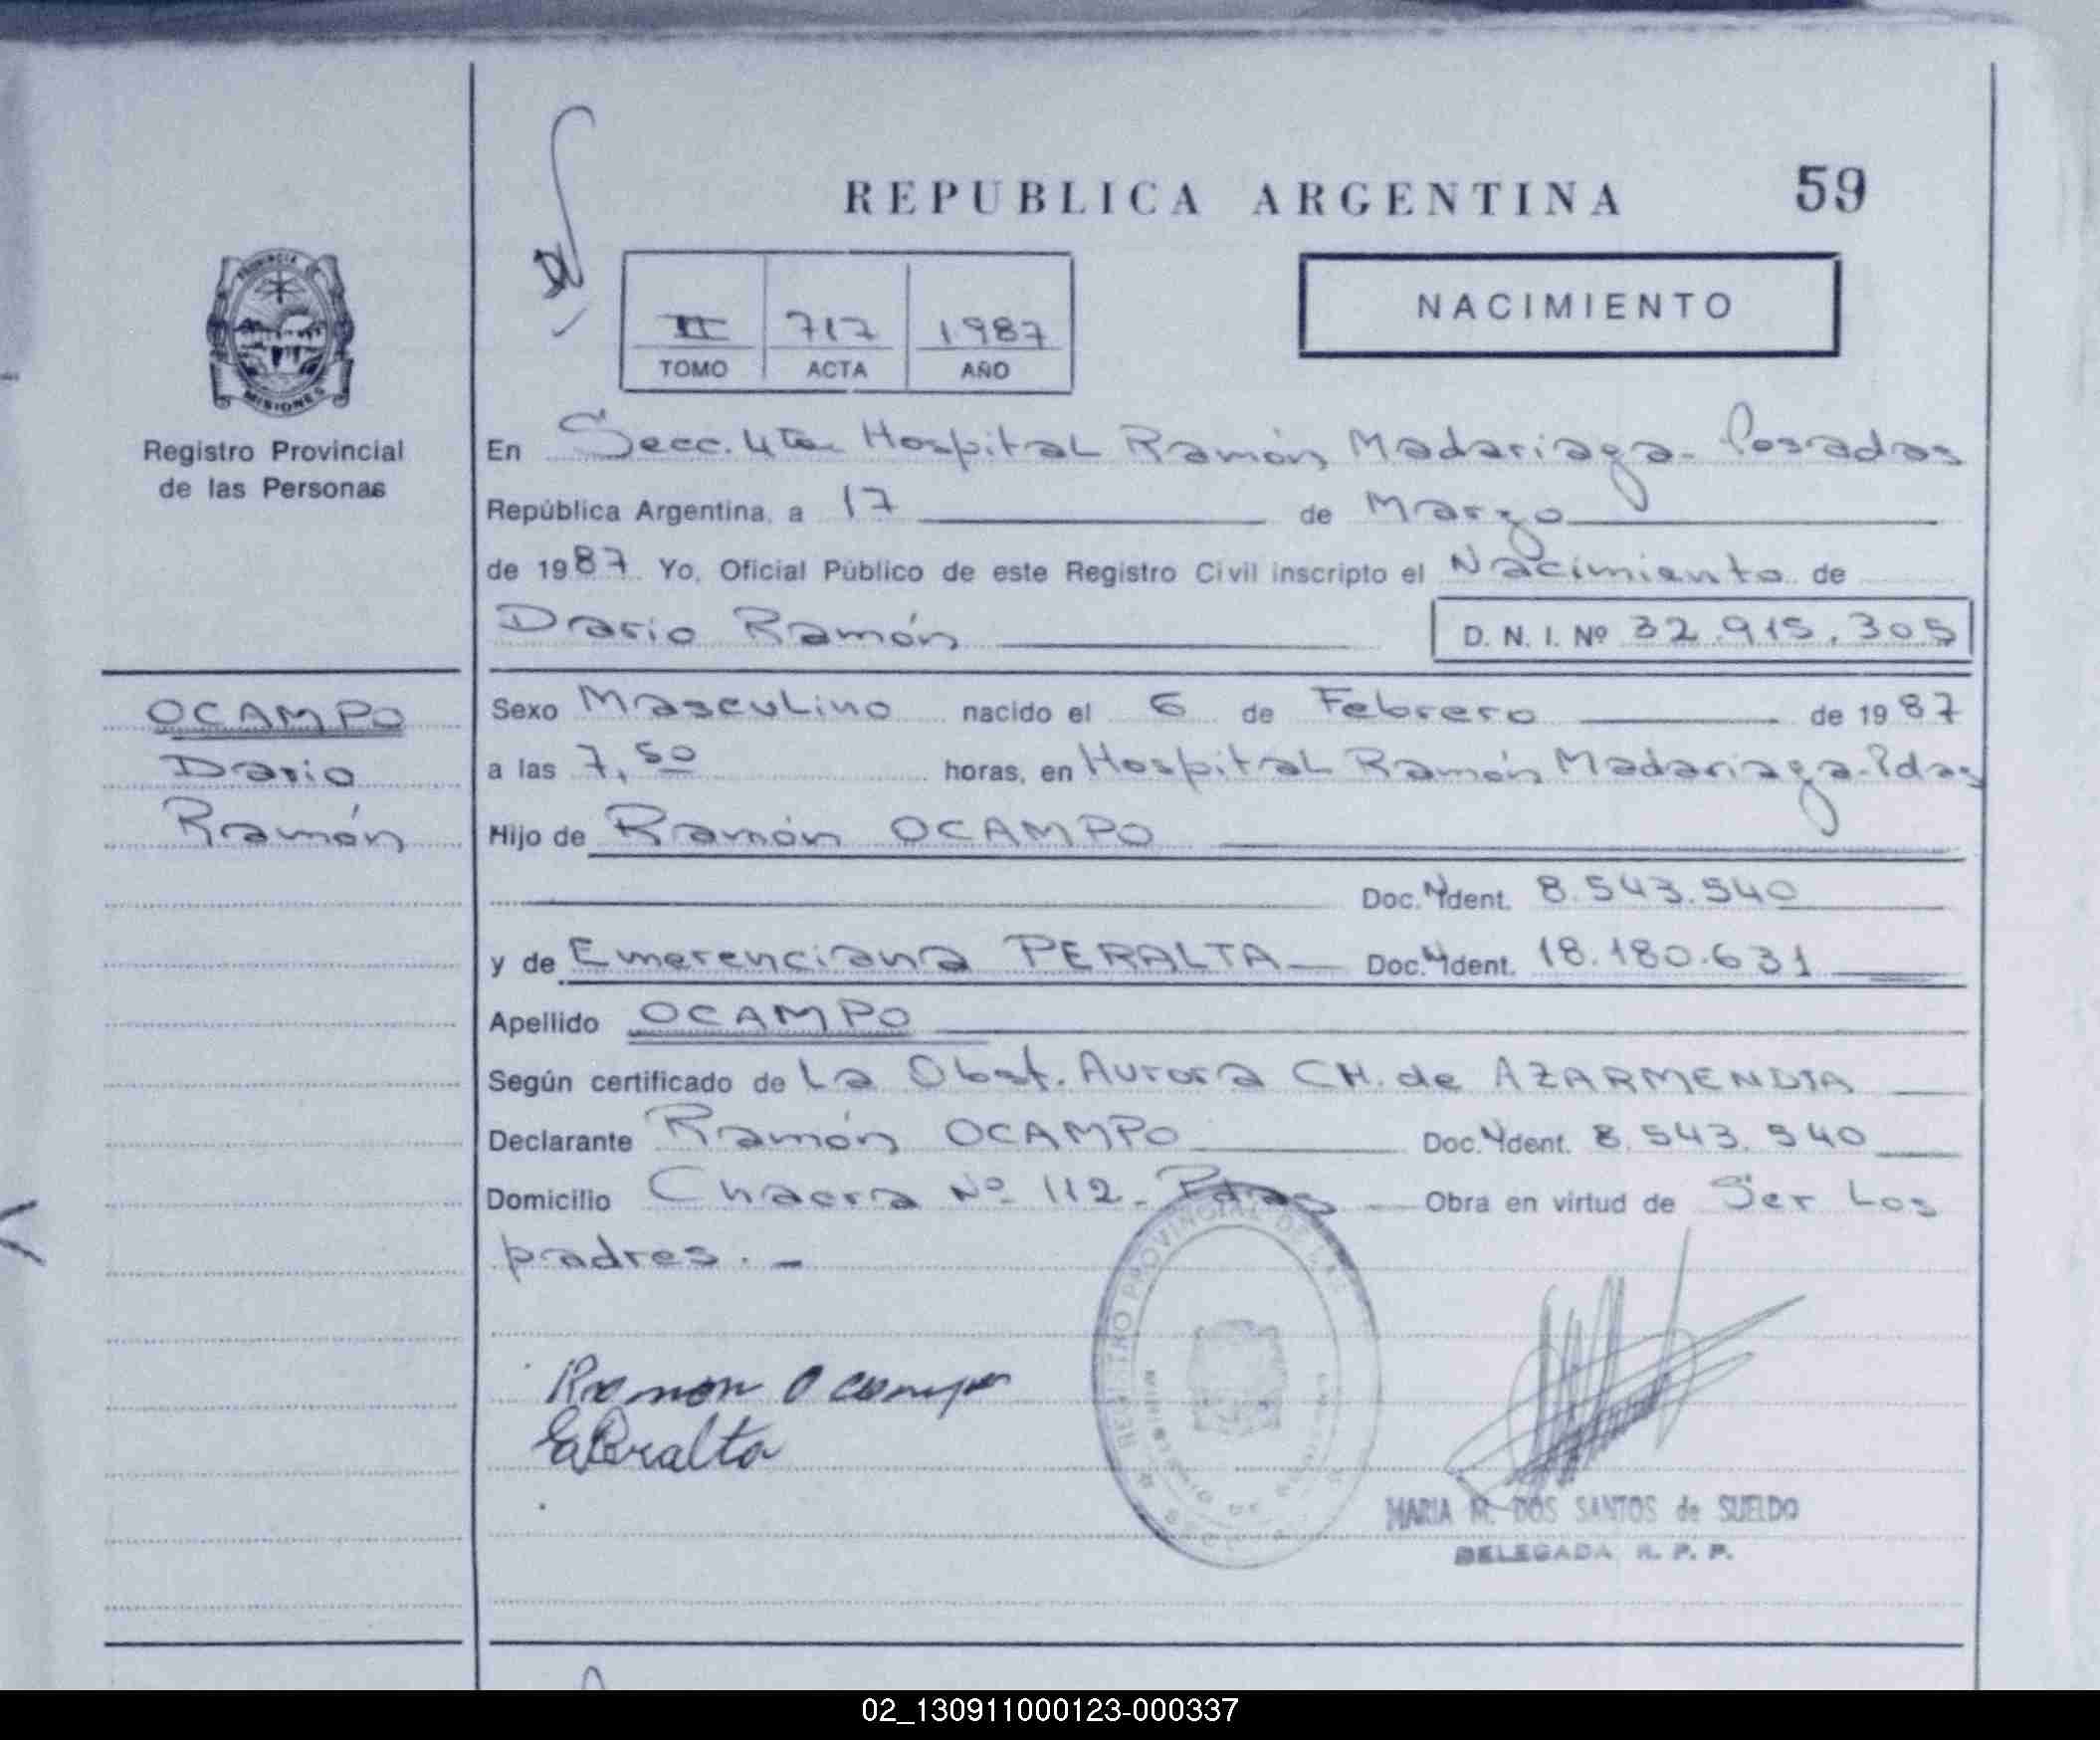 REPUBLICA ARGENTINA 59
NACIMIENTO
II 717 1987
TOMO ACTA AÑO
PROVINCIA DE
MISIONES
Registro Provincial
de las Personas
En Secc. 4ta Hospital Ramón Madariaga - Posadas
República Argentina, a 17 de Marzo
de 1987 Yo, Oficial Público de este Registro Civil inscripto el Nacimiento de
Dario Ramón D. N. I. Nº 32.915.305
OCAMPO
Dario
Ramón
Sexo Masculino nacido el 6 de Febrero de 1987
a las 7,50 horas, en Hospital Ramón Madariaga - Pdas
Hijo de Ramón OCAMPO
Doc. Ident. 8.543.540
y de Emerenciana PERALTA Doc. Ident. 18.180.631
Apellido OCAMPO
Según certificado de La Obst. Aurora CH. de AZARMENDIA
Declarante Ramón OCAMPO Doc. Ident. 8.543.540
Domicilio Chacra Nº 112 - Pdas Obra en virtud de Ser Los
padres. -
Ramon Ocampo
E Peralta
REGISTRO PROVINCIAL DE LAS
MINISTERIO DE
MARIA M. DOS SANTOS de SUELDO
DELEGADA R. P. P.
02_130911000123-000337